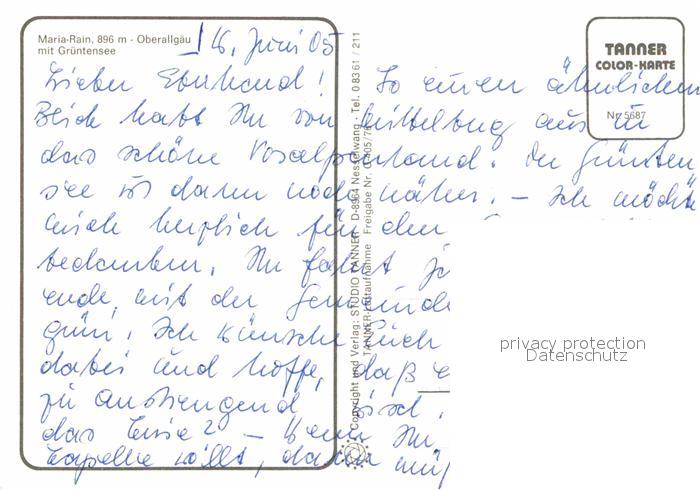 Maria-Rain, 896 m - Oberallgäu
mit Grüntensee
16. Juni 05
TANNER
COLOR-KARTE
Nr. 5687
Lieber Eberhard! So einen ähnlichen
Blick habt Ihr von Mittelberg aus in
das schöne Voralpenland. Der Grünten
see ist dann noch näher. – Ich möchte
mich herzlich für den
bedanken. Ihr fahrt
ende, mit der Gemeinde
grün. Ich wünsche Euch
dabei und hoffe, daß e
zu anstrengend ist.
das – Wenn Ihr
Kapelle wollt, dann müß
Copyright und Verlag: STUDIO TANNER · D-8964 Nesselwang - Tel. 0 83 61 / 211
TANNER-Luftaufnahme · Freigabe Nr.
privacy protection
Datenschutz